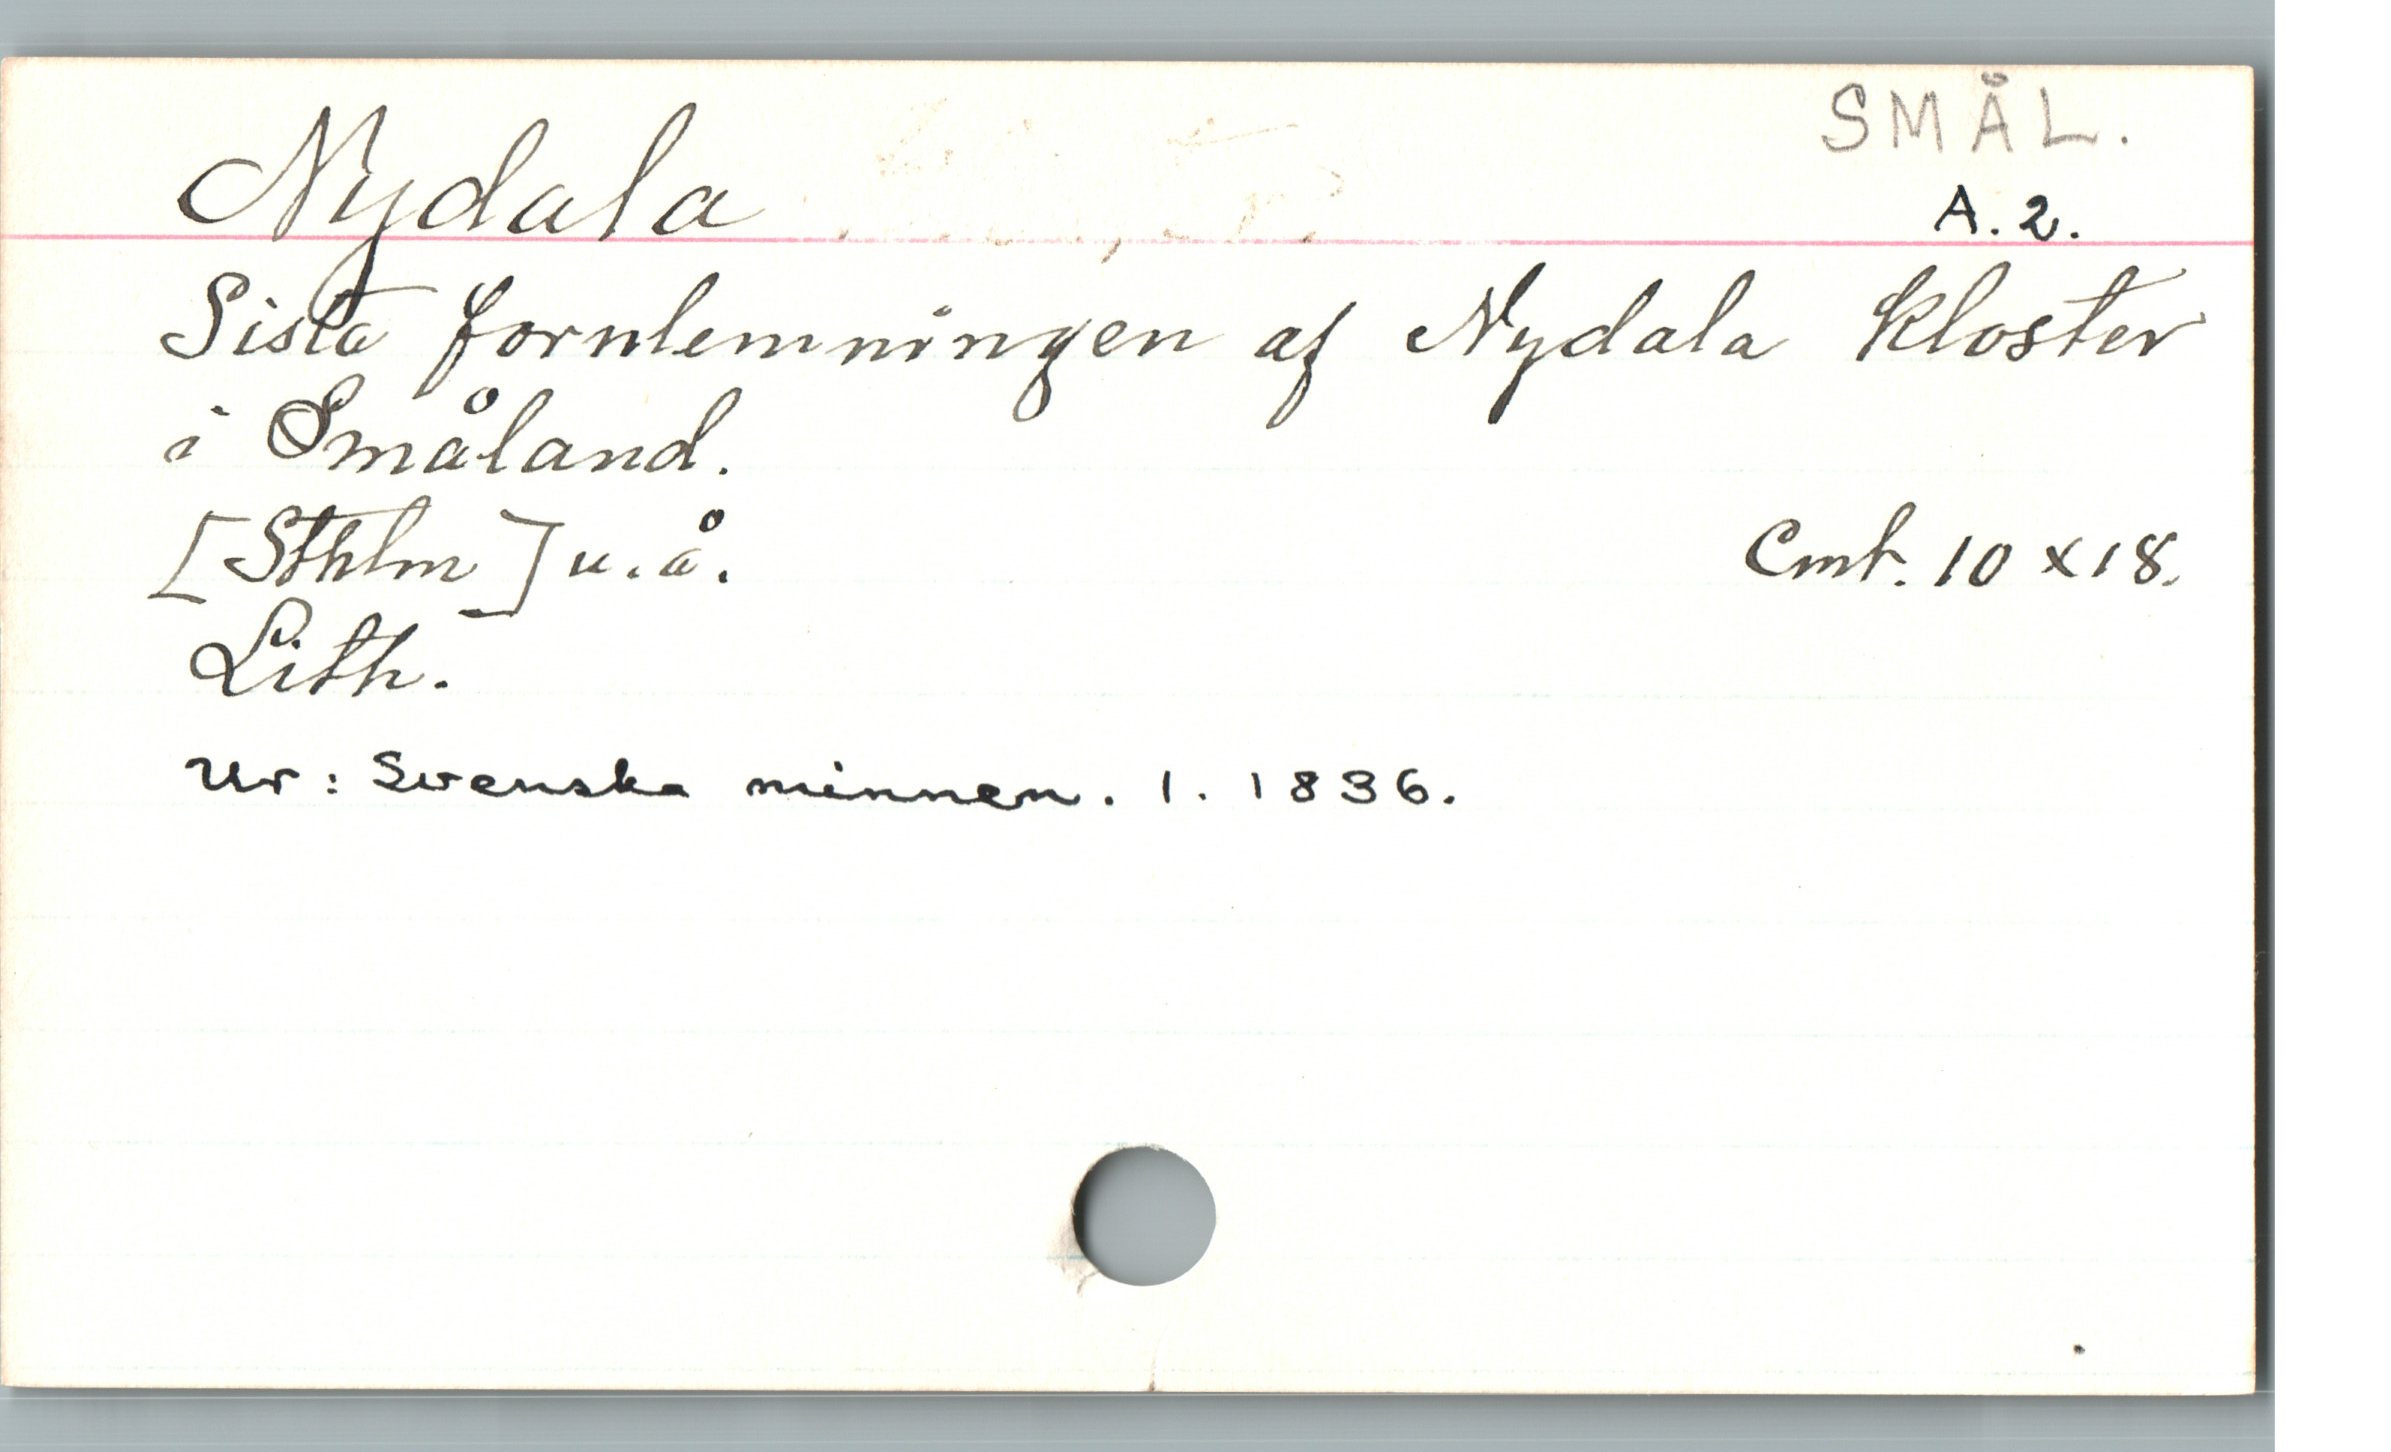 SMÅL.
Nydala A. 2.
Sista fornlemningen af Nydala Kloster
i Småland.
[Sthlm] u.å. Cmt. 10 x 18.
Lith.
Ur: Svenska minnen. 1. 1836.